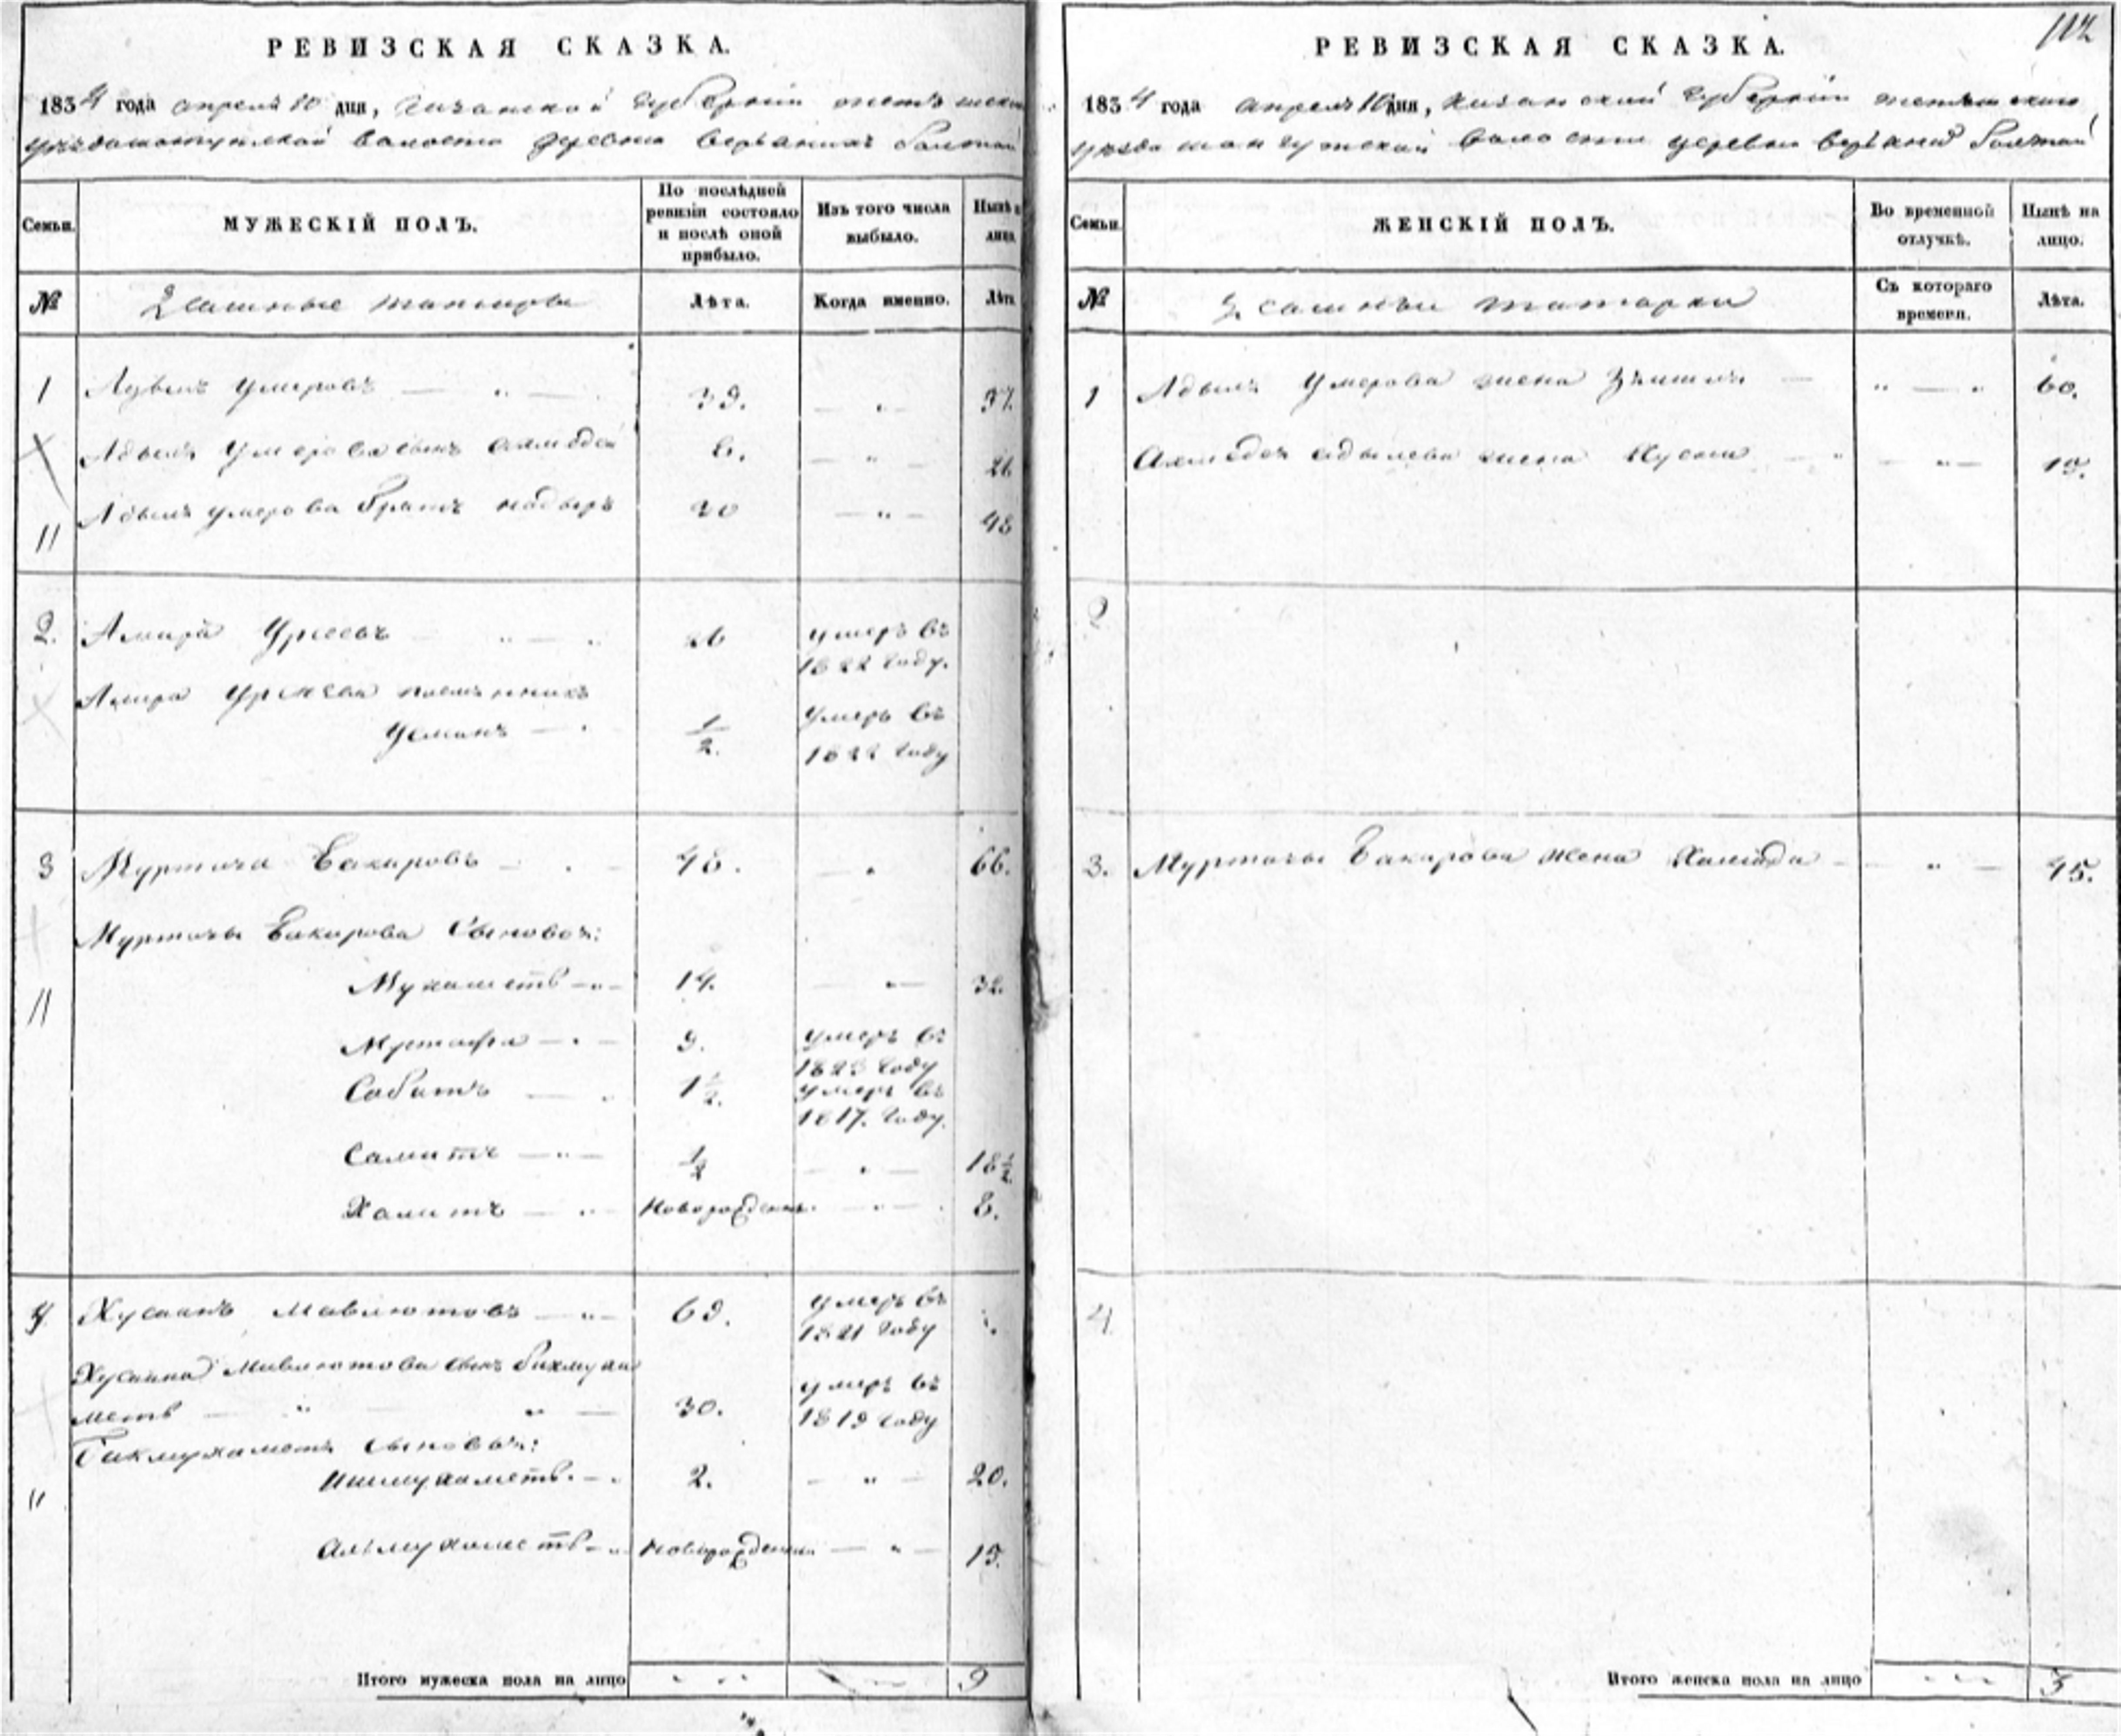 РЕВИЗСКАЯ СКАЗКА.
1834 года апреля 10 дня, Казанской губернии тетюшскаго
уезда волости деревни
Семьи.
МУЖЕСКІЙ ПОЛЪ.
По послѣдней ревизіи состояло и послѣ оной прибыло.
Изъ того числа выбыло.
Нынѣ на лицо.
№
Ясашные татары
Лѣта.
Когда именно.
Лѣта
1 Адылъ Умеровъ — „ — 39. — „ — 57.
Адыля Умерова сынъ Ахмедей 8. — „ — 26
Адыля умерова братъ Надыръ 30 — „ — 48
2. Амиръ 26 умеръ въ
1822 году.
Амира племянникъ
Усманъ — „ 1/2. умеръ въ
1822 году
3 Муртаза Бакировъ — „ — 48. — „ 66.
Муртазы Бакирова сыновья:
Мухаметъ — „ — 14. — „ — 32.
Мустафа — „ — 9. умеръ въ
1823 году
Сабитъ — „ 1 1/2. умеръ въ
1817. году.
Самитъ — „ — 1/2 — „ — 18 1/2.
Халитъ — „ новорожденъ — „ — 8.
4 Хусаинъ Мавлютовъ — „ — 69. умеръ въ
1821 году
Хусаина Мавлютова сынъ бикмуха
метъ — „ „ — 30. умеръ въ
1819 году
Бикмухамета сыновья:
Ишмухаметъ. — „ 2. — „ — 20.
Альмухаметъ — „ новорожденъ — „ — 15.
Итого мужеска пола на лицо 9
112
РЕВИЗСКАЯ СКАЗКА.
1834 года апреля 10 дня, Казанской губернии тетюшскаго
уезда волости деревни
Семьи.
ЖЕНСКІЙ ПОЛЪ.
Во временной отлучкѣ.
Нынѣ на лицо.
№
Ясашные татарки
Съ котораго времени.
Лѣта.
1 Адыля Умерова жена — „ — „ 60.
Ахмедея адылева жена — „ — „ — 15.
2
3. Муртазы Бакирова жена Халида — „ — 45.
4
Итого женска пола на лицо 3